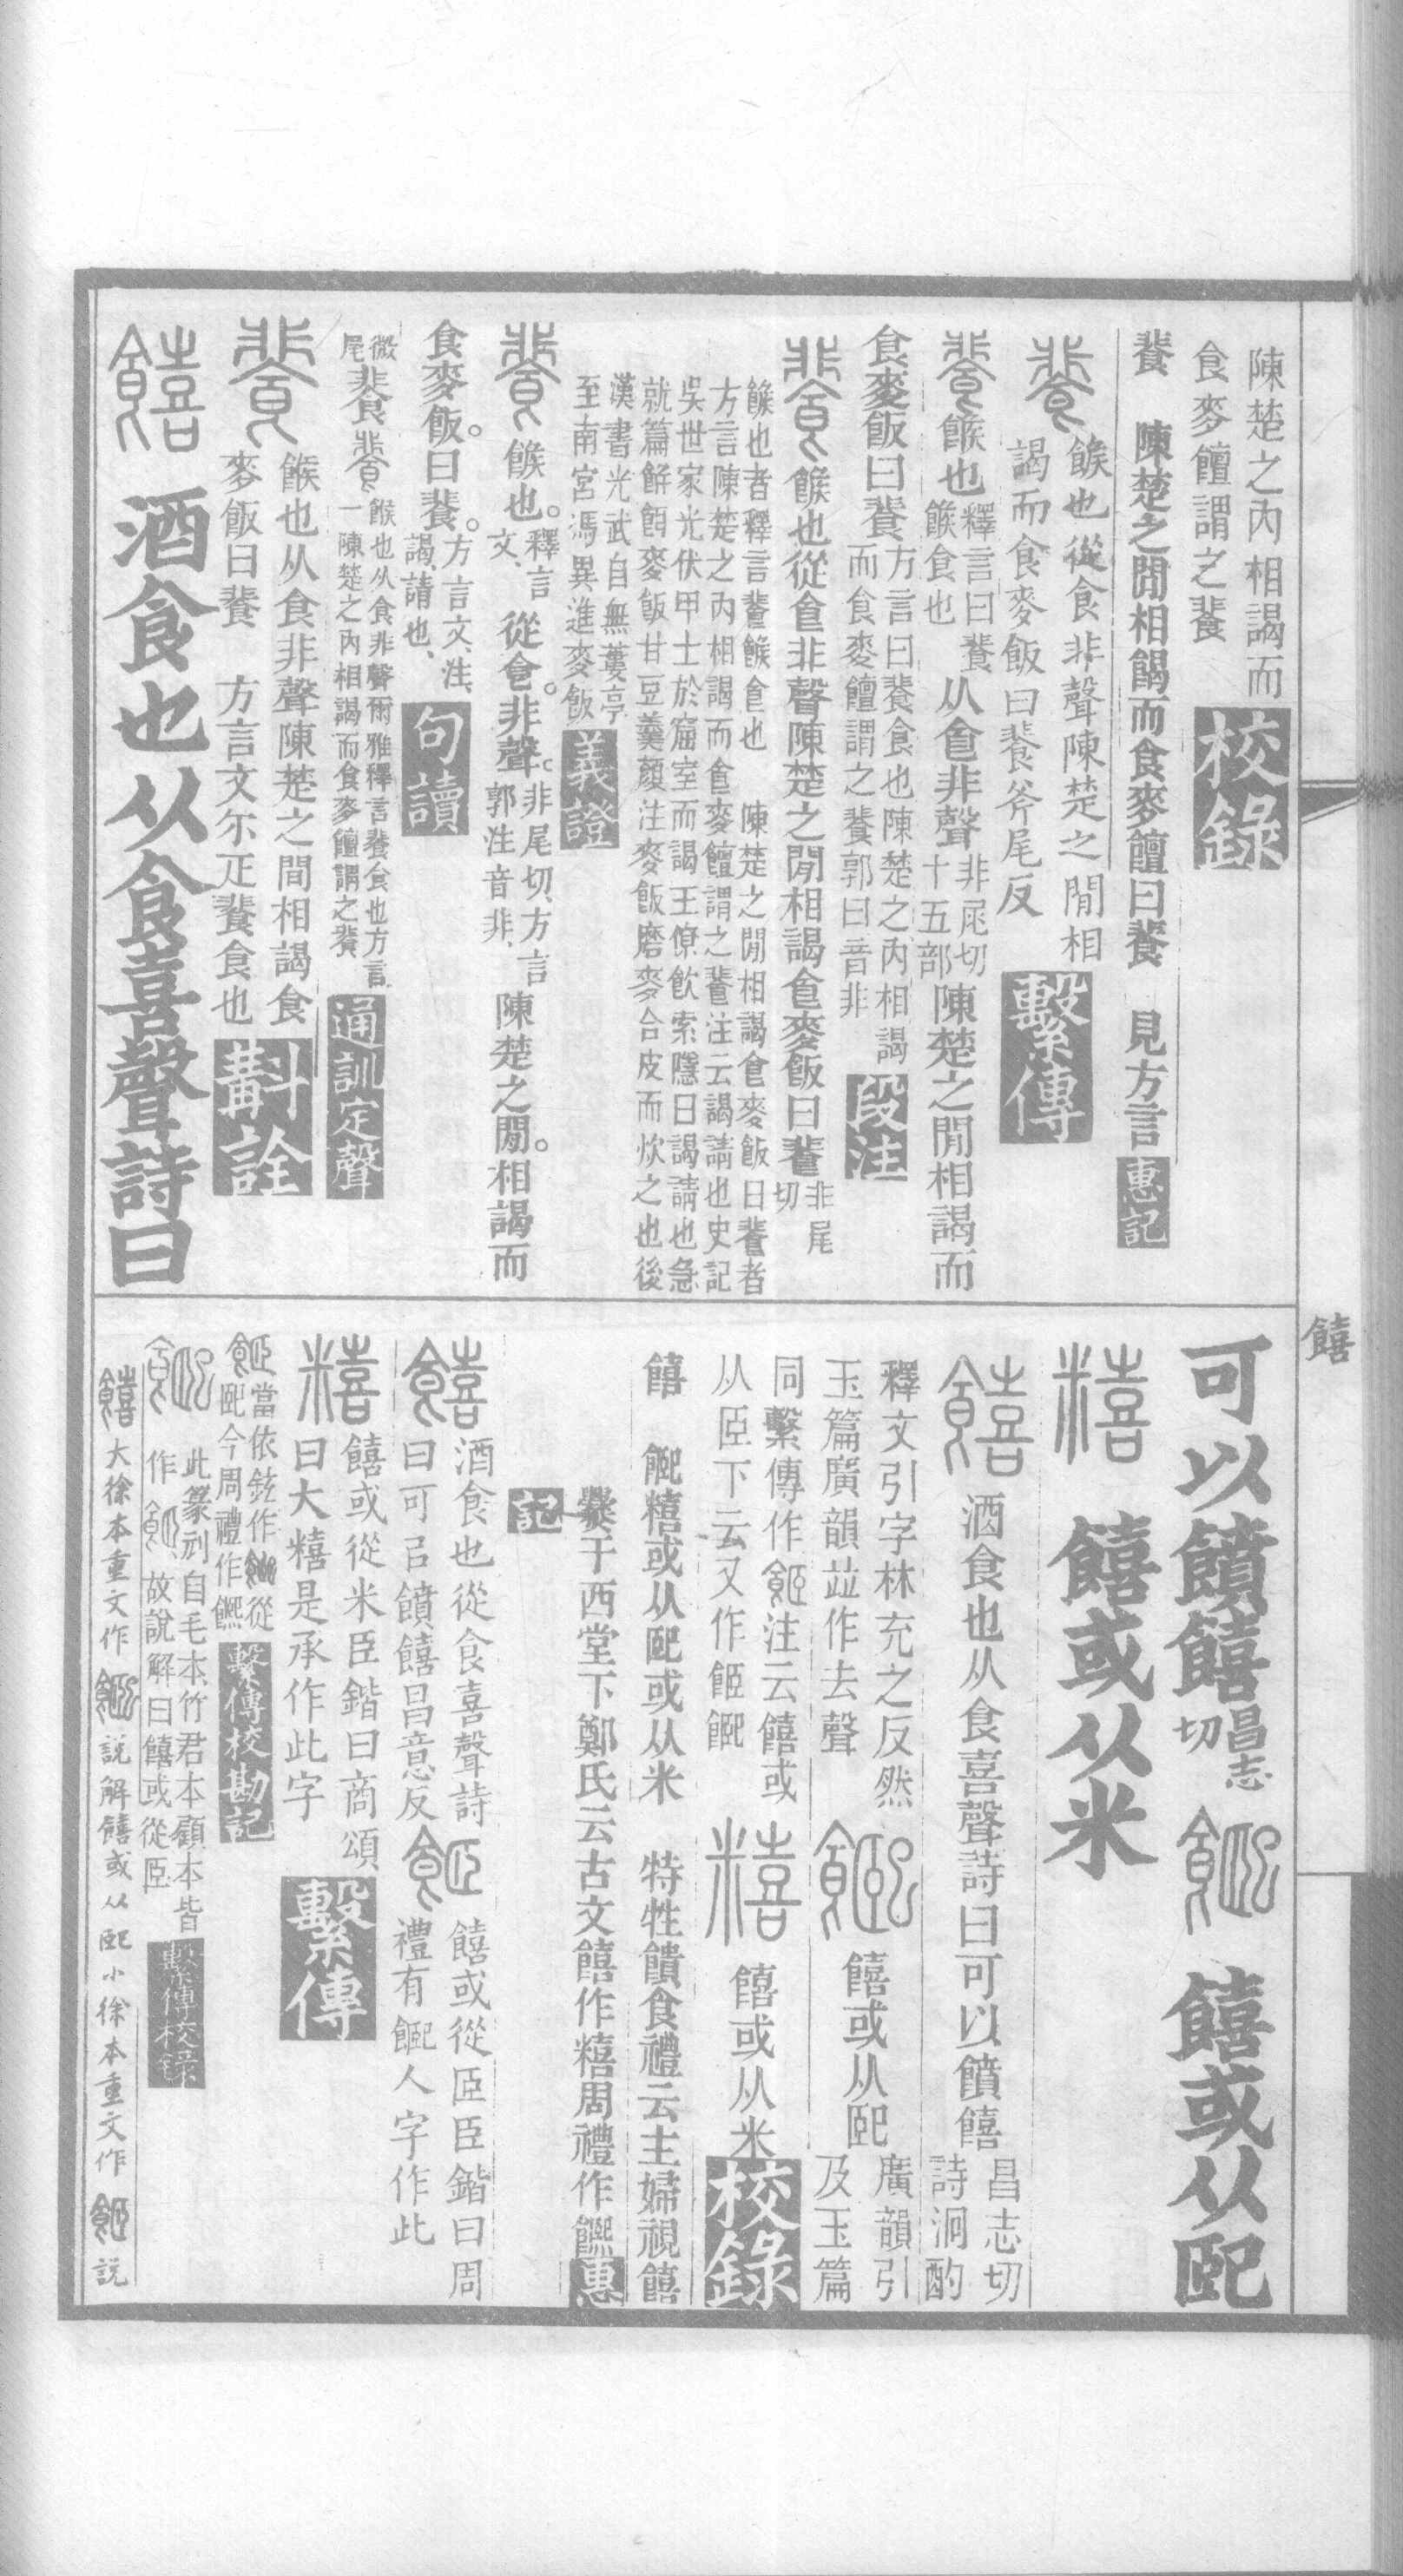 陳楚之內相謁而
食麥饘謂之䬠 校錄
䬠 陳楚之閒相餲而食麥饘曰䬠 見方言 惠記
餱也從食非聲陳楚之閒相
謁而食麥飯曰䬠斧尾反 繫傳
餱也 釋言曰䬠
餱食也 从食非聲 非尾切
十五部 陳楚之閒相謁而
食麥飯曰䬠 方言曰䬠食也陳楚之內相謁
而食麥饘謂之䬠郭曰音非 段注
餱也從食非聲陳楚之閒相謁食麥飯曰䬠 非尾
切
餱也者釋言䬠餱食也 陳楚之閒相謁食麥飯曰䬠者
方言陳楚之內相謁而食麥饘謂之䬠注云謁請也史記
吳世家光伏甲士於窟室而謁王僚飲索隱曰謁請也急
就篇餅餌麥飯甘豆羹顏注麥飯磨麥合皮而炊之也後
漢書光武自無蔞亭
至南宮馮異進麥飯 義證
餱也。 釋言
文、 從食。非聲。 非尾切、方言
郭注音非、 陳楚之閒。相謁而
食麥飯。曰䬠。 方言文、注、
謁、請也、 句讀
微
尾 䬠 餱也从食非聲爾雅釋言䬠食也方言
一陳楚之內相謁而食麥饘謂之䬠 通訓定聲
餱也从食非聲陳楚之間相謁食
麥飯曰䬠 方言文尒疋䬠食也 斠詮
饎 酒食也从食喜聲詩曰
可以饙饎 昌志
切 饎或从巸
糦 饎或从米
饎 酒食也从食喜聲詩曰可以饙饎 昌志切
詩泂酌
釋文引字林充之反然
玉篇廣韻竝作去聲 饎或从巸 廣韻引
及玉篇
同繫傳作䬣注云饎或
从𦣞下云又作䬣𩜾 糦 饎或从米 校錄
饎 𩜾糦或从巸或从米 特牲饋食禮云主婦視饎
爨于西堂下鄭氏云古文饎作糦周禮作𩞿 惠
記
饎 酒食也從食喜聲詩
曰可㠯饙饎昌意反 饎或從𦣞臣鍇曰周
禮有𩜾人字作此
糦 饎或從米臣鍇曰商頌
曰大糦是承作此字 繫傳
䬣當依鉉作𩜾從
巸今周禮作𩞿 繫傳校勘記
此篆刓自毛本、竹君本顧本皆
作䬣、故說解曰饎或從𦣞 繫傳校錄
饎 大徐本重文作𩜾說解饎或从巸小徐本重文作䬣說
饎